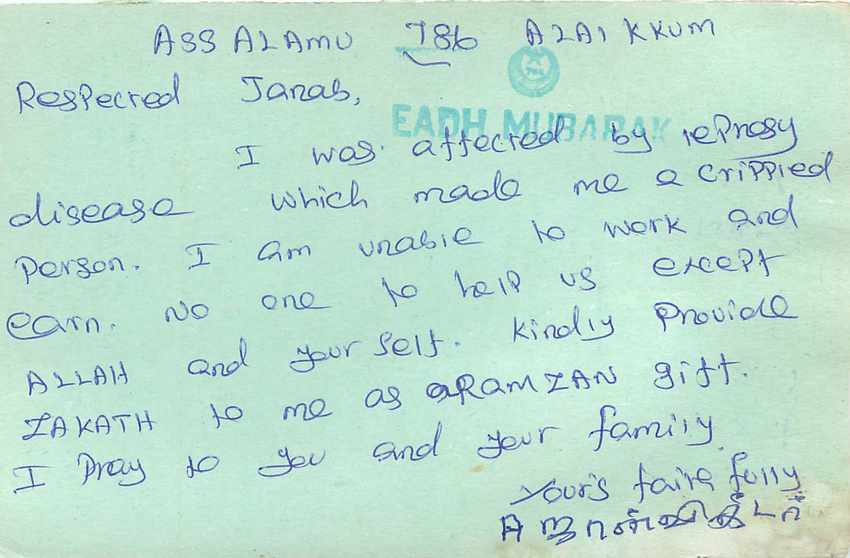 ASSALAMU 786 ALAI KKUM
Respected Janab,
EADH MUBARAK
I was affected by leprosy
disease which made me a crippled
person. I am unable to work and
earn. No one to help us except
ALLAH and your self. Kindly provide
ZAKATH to me as a RAMZAN gift.
I pray to you and your family
Your's faith fully
A